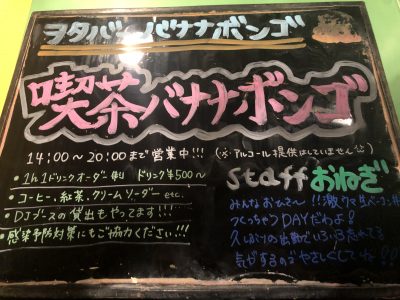 ヲタバーバナナボンゴ
喫茶バナナボンゴ
14:00〜20:00まで営業中!!!(※アルコール提供はしていません)
・1h1ドリンクオーダー制 ドリンク¥500〜
・コーヒー、紅茶、クリームソーダー etc.
・DJブースの貸出もやってます!!!
・感染予防対策にもご協力ください!!!
staff おねぎ
みんなおはねぎ〜!!激ウマ生ベーコン丼
つくっちゃうDAYだわよ!
久しぶりの出勤でいろいろ忘れてる
気がするのでやさしくしてね!!